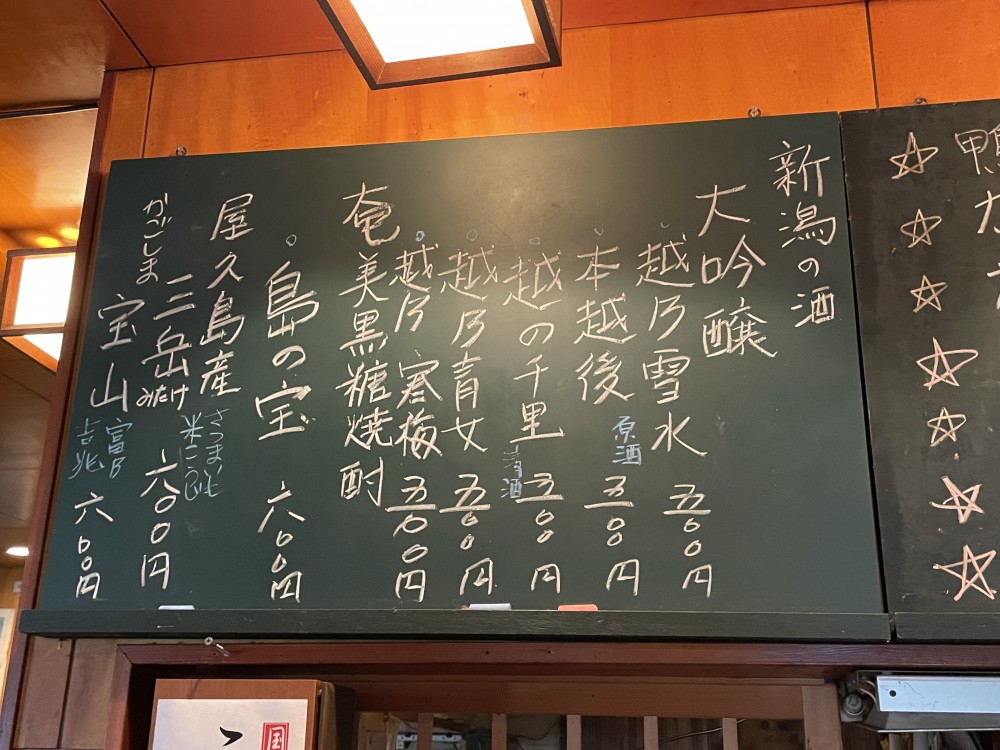 新潟の酒
大吟醸
越乃雪水 五〇〇円
本越後 原酒 五〇〇円
越の千里 清酒 五〇〇円
越乃青女 五〇〇円
越乃寒梅 五〇〇円
奄美黒糖焼酎
島の宝 六〇〇円
屋久島産
さつまいも
米こうじ
三岳 みたけ 六〇〇円
かごしま
宝山 富乃
吉兆 六〇〇円
鴨
国